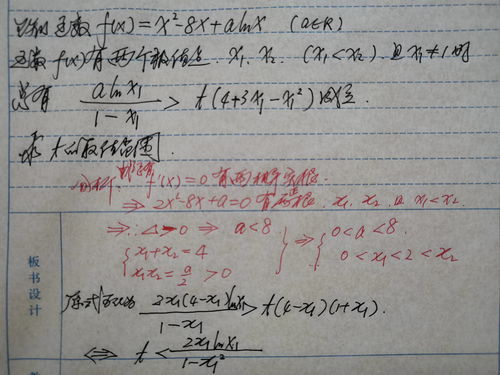 已知函数 f(x)=x²-8x+alnx (a∈R)
函数 f(x)有两个极值点 x₁, x₂ (x₁<x₂) 且 x₁≠1时
总有 alnx₁/(1-x₁) > t(4+3x₁-x₁²) 恒成立.
求 t 的取值范围.
分析. f'(x)=0 有两相异实根.
⇒ 2x²-8x+a=0 有两正根. x₁, x₂ 且 x₁<x₂.
⇒ ∴ Δ>0 ⇒ a<8
x₁+x₂=4
x₁x₂=a/2>0
⇒ { 0<a<8
0<x₁<2<x₂
原式可化为 2x₁(4-x₁)lnx₁/(1-x₁) > t(4-x₁)(1+x₁).
⇔ t< 2x₁lnx₁/(1-x₁²)
板书设计